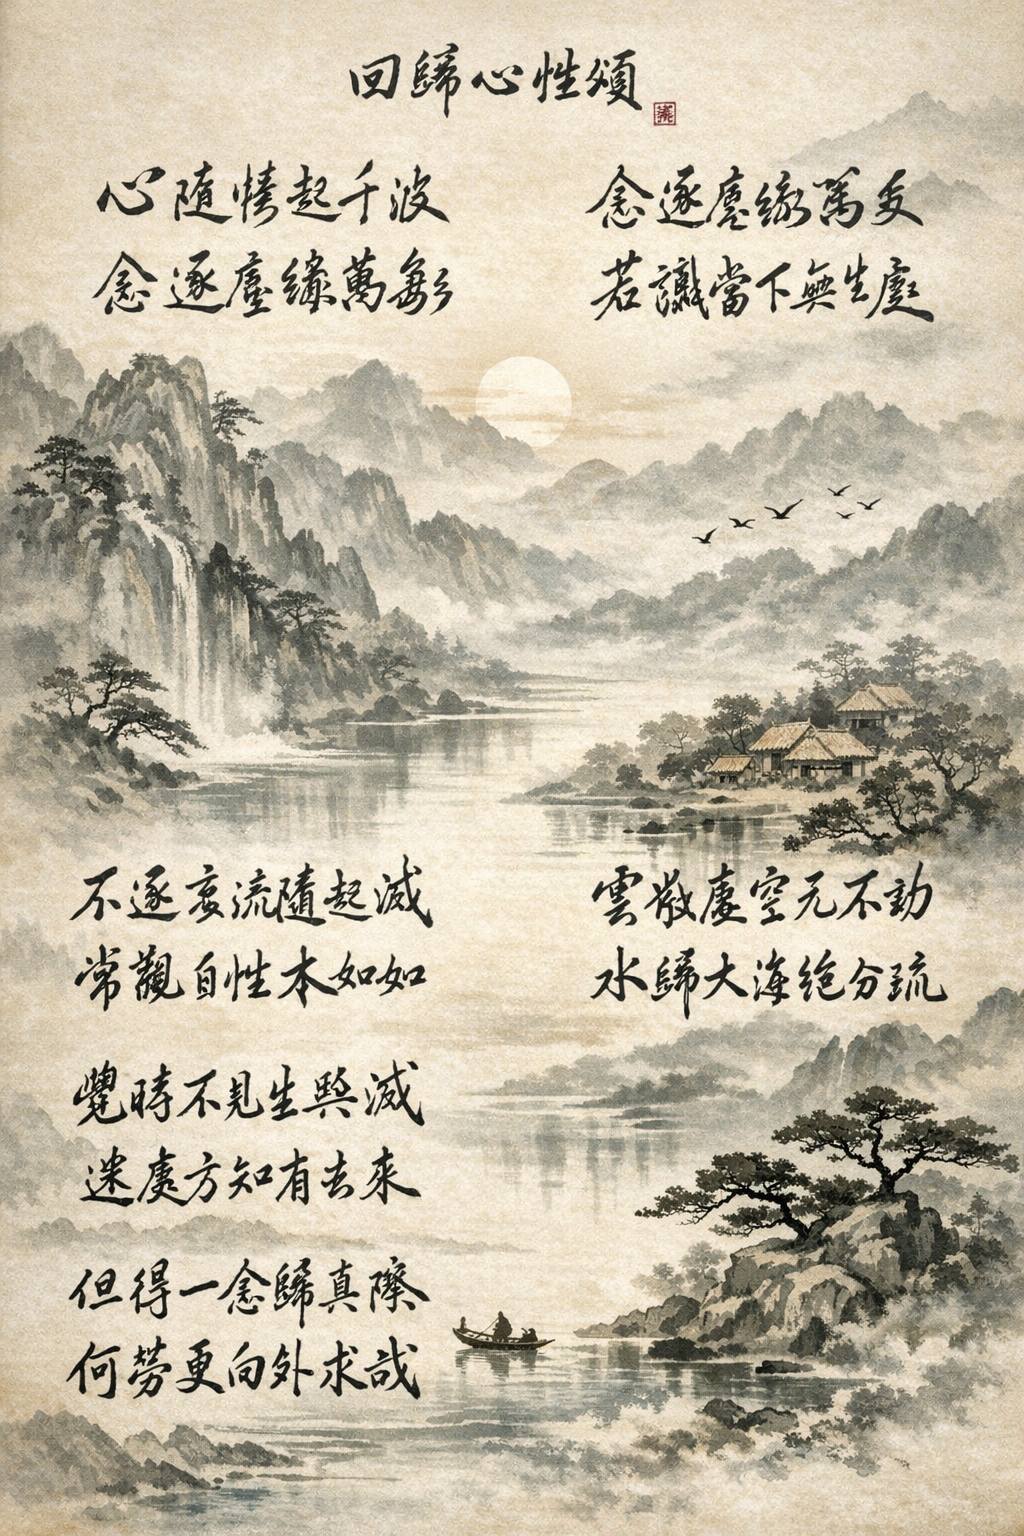 回歸心性頌
心隨情起千波
念逐塵緣萬
念逐塵緣萬
若識當下無生處
不逐流隨起滅
常觀自性本如如
雲散虛空元不動
水歸大海絕分疏
覺時不見生與滅
迷處方知有去來
但得一念歸真際
何勞更向外求哉